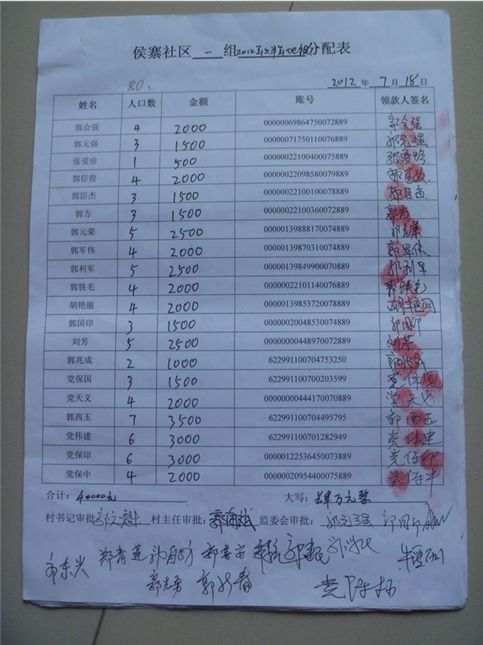 侯寨社区 一 组2012年上半年地组分配表
80.
2012 年 7 月 18 日
姓名 人口数 金额 账号 领款人签名
郭会强 4 2000 00000069864750072889 郭会强
郭元强 3 1500 00000071750110076889 郭元强
张爱珍 1 500 00000022100400075889 张爱珍
郭臣俊 4 2000 00000022098580079889
郭臣杰 3 1500 00000022100100078889 郭臣杰
郭方 3 1500 00000022100360072889 郭方
郭元荣 5 2500 00000139888170074889 郭元荣
郭军伟 4 2000 00000139870310074889 郭军伟
郭利军 5 2500 00000139849900070889 郭利军
郭铁毛 4 2000 00000022101140076889 郭铁毛
胡艳丽 4 2000 00000139853720078889
郭国印 3 1500 00000020048530074889 郭国印
刘芳 5 2500 00000000448970072889 刘芳
郭兆成 2 1000 622991100704753250 郭兆成
党保国 3 1500 622991100700203599 党保国
党天义 4 2000 00000000444170070889 党天义
郭西玉 7 3500 622991100704495795 郭西玉
党伟建 6 3000 622991100701282949 党伟建
党保印 6 3000 00000122536450073889 党保印
党保中 4 2000 00000020954400075889 党保中
合计： 40000元 大写： 肆万元整
村书记审批： 村主任审批： 监委会审批：